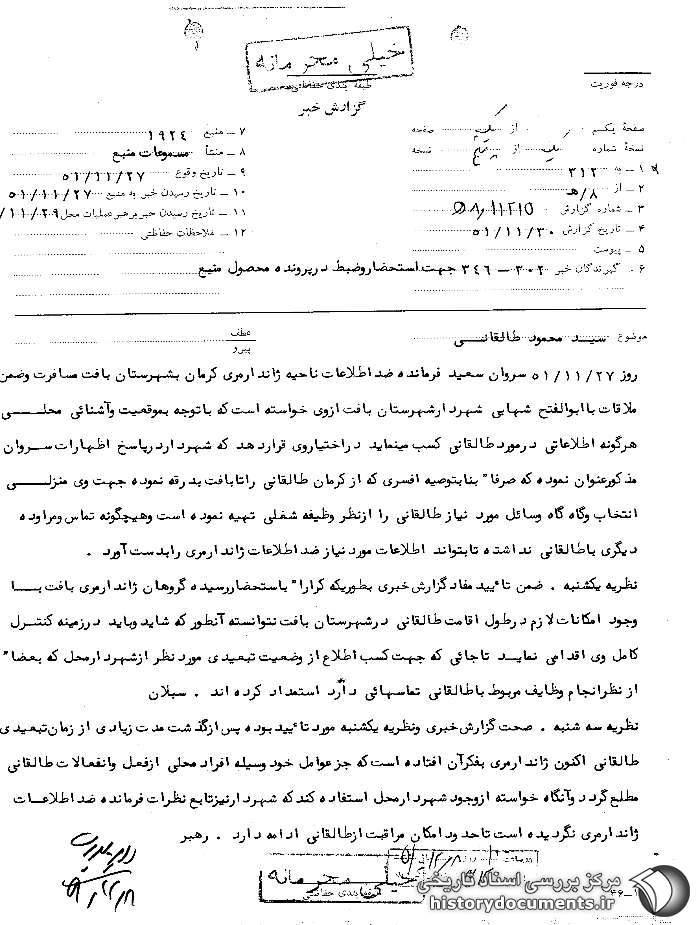 خیلی محرمانه
طبقه بندی حفاظتی
درجه فوریت
گزارش خبر
صفحهٔ یکم از یک صفحه
نسخهٔ شماره یک از پنج نسخه
۱ ـ به ۳۱۲
۲ ـ از ۸/هـ
۳ ـ شماره گزارش
۴ ـ تاریخ گزارش ۵۱/۱۱/۳۰
۵ ـ پیوست
۶ ـ گیرندگان خبر ۳۰۲ – ۳۴۶ جهت استحضار وضبط در پرونده محصول منبع
۷ ـ منبع ۱۹۲۴
۸ ـ منشأ مسموعات منبع
۹ ـ تاریخ وقوع ۵۱/۱۱/۲۷
۱۰ ـ تاریخ رسیدن خبر به منبع ۵۱/۱۱/۲۷
۱۱ ـ تاریخ رسیدن خبر برهبر عملیات محل /۱۱/۲۹
۱۲ ـ ملاحظات حفاظتی
موضوع سید محمود طالقانی
عطف
پیرو
روز ۵۱/۱۱/۲۷ سروان سعید فرمانده ضد اطلاعات ناحیه ژاندارمری کرمان بشهرستان بافت مسافرت وضمن
ملاقات با ابوالفتح شهابی شهردار شهرستان بافت ازوی خواسته است که با توجه بموقعیت وآشنائی محلی
هرگونه اطلاعاتی درمورد طالقانی کسب مینماید در اختیاروی قرار دهد که شهردار درپاسخ اظهارات سروان
مذکور عنوان نموده که صرفا" بنابتوصیه افسری که از کرمان طالقانی را تا بافت بدرقه نموده جهت وی منزلی
انتخاب وگاه گاه وسائل مورد نیاز طالقانی را از نظر وظیفه شغلی تهیه نموده است وهیچگونه تماس ومراوده
دیگری با طالقانی نداشته تا بتواند اطلاعات مورد نیاز ضد اطلاعات ژاندارمری را بدست آورد .
نظریه یکشنبه . ضمن تأیید مفاد گزارش خبری بطوریکه کرارا" باستحضار رسیده گروهان ژاندارمری بافت با
وجود امکانات لازم در طول اقامت طالقانی در شهرستان بافت نتوانسته آنطور که شاید وباید در زمینه کنترل
کامل وی اقدامی نماید تا جائی که جهت کسب اطلاع از وضعیت تبعیدی مورد نظر از شهردار محل که بعضا"
از نظر انجام وظایف مربوط با طالقانی تماسهائی دارد استمداد کرده اند . سبلان
نظریه سه شنبه . صحت گزارش خبری ونظریه یکشنبه مورد تأیید بوده پس از گذشت مدت زیادی از زمان تبعیدی
طالقانی اکنون ژاندارمری بفکر آن افتاده است که جز عوامل خود وسیله افراد محلی از فعل وانفعالات طالقانی
مطلع گردد وآنگاه خواسته از وجود شهردار محل استفاده کند که شهردار نیز تابع نظرات فرمانده ضد اطلاعات
ژاندارمری نگردیده است تا حدود امکان مراقبت از طالقانی ادامه دارد . رهبر
خیلی محرمانه
طبقه بندی حفاظتی
مرکز بررسی اسناد تاریخی
historydocuments.ir